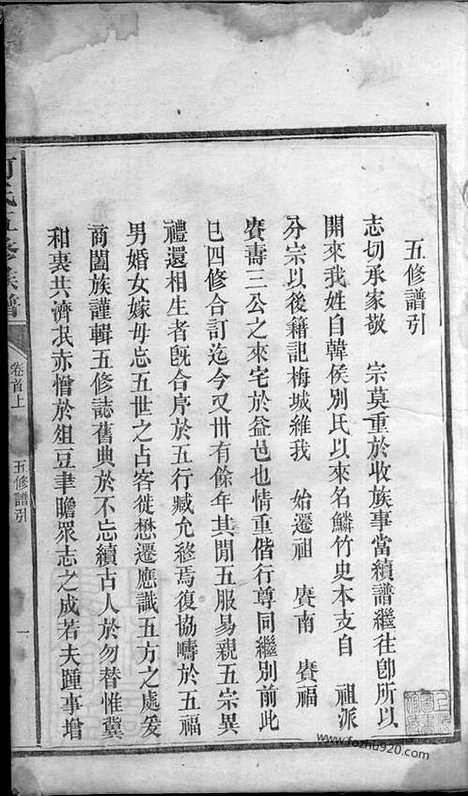 五修譜引
志切承家敬 宗莫重於收族事當續譜繼往卽所以
開來我姓自韓侯別氏以來名鱗竹史本支自 祖派
分宗以後籍記梅城維我 始遷祖 賡南 賡福
賡壽三公之來宅於益邑也情重偕行尊同繼別前此
巳四修合訂迄今又卅有餘年其閒五服易親五宗異
禮還相生者旣合序於五行臧允終焉復協疇於五福
男婚女嫁毋忘五世之占客徙懋遷應識五方之處爰
商闔族謹輯五修誌舊典於不忘續古人於勿替惟冀
和衷共濟泯赤憎於俎豆聿瞻眾志之成若夫踵事增
何氏五修族譜
卷首上
五修譜引
一
www.fozhu920.com